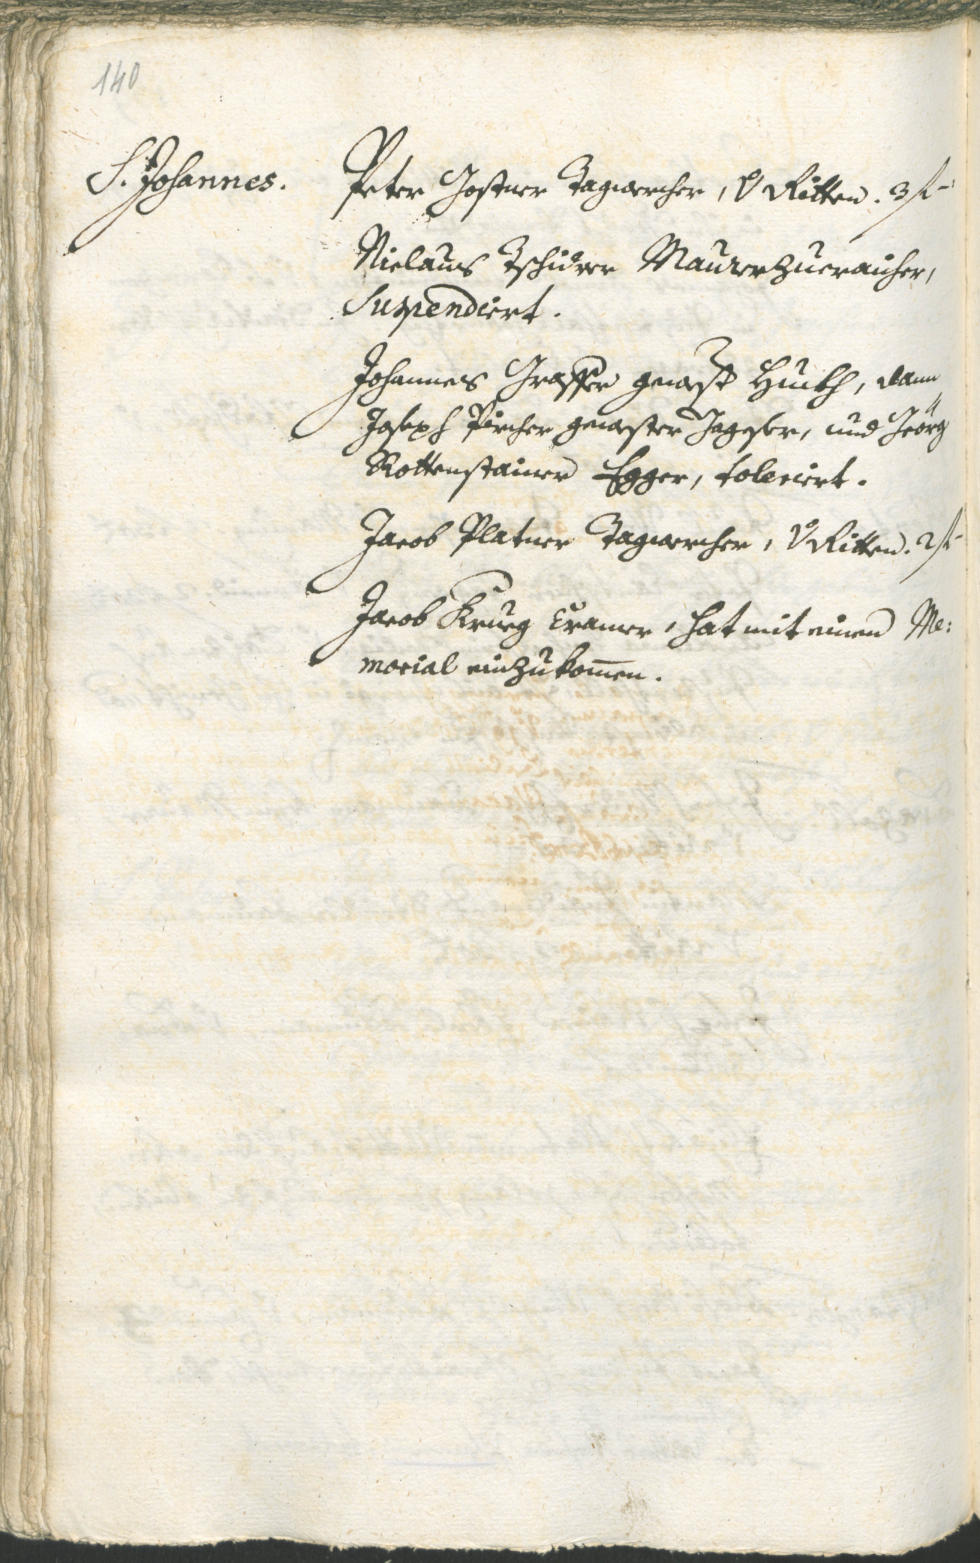 140
S. Johannes.
Peter Gostner Tagwercher, v Ritten. 3 f
Niclaus Tschurer Maurerzuraicher,
Suspendiert.
Johannes Grasser gewest Hueth, dann
Joseph Pircher gewester, und Geörg
Rottenstainer Egger, toleriert.
Jacob Platner Tagwercher, v Ritten. 2 f
Jacob Krueg Cramer, hat mit einen Me:
morial einzukomen.